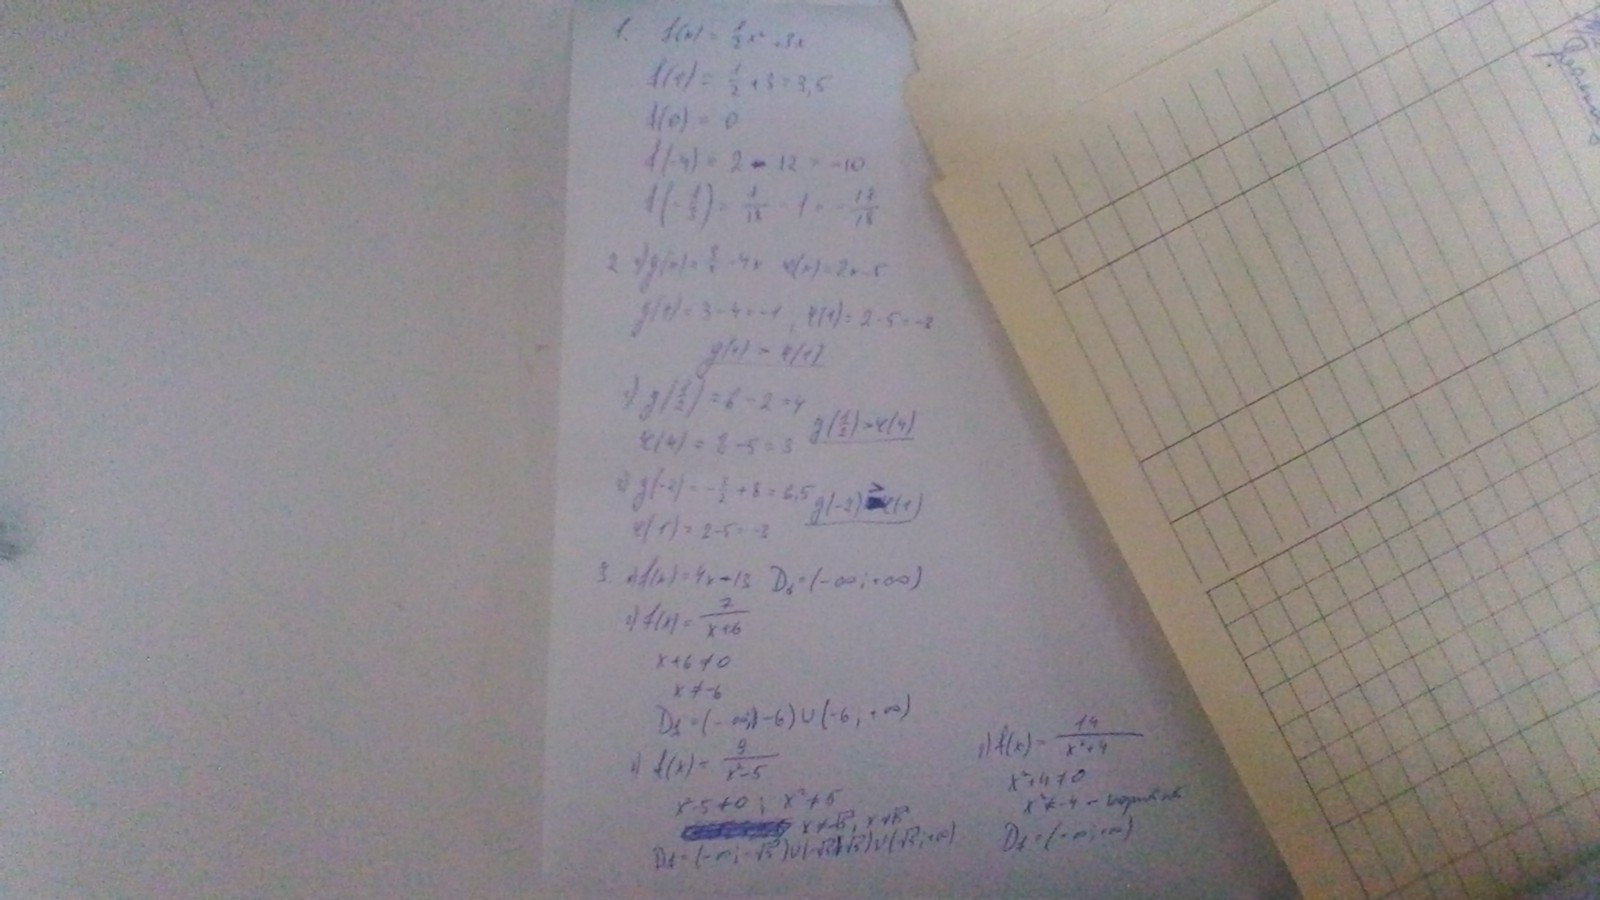 1. f(x) = 1/2 x² + 3x
f(1) = 1/2 + 3 = 3,5
f(0) = 0
f(-4) = 2 - 12 = -10
f(-1/3) = 1/18 - 1 = -17/18
2 а) g(x) = 3/x - 4x φ(x) = 2x-5
g(1) = 3-4 = -1, φ(1) = 2-5 = -3
g(1) > φ(1)
g(1/2) = 6 - 2 = 4
φ(4) = 8-5 = 3 g(1/2) > φ(4)
g(-2) = -3/2 + 8 = 6,5 g(-2) > φ(1)
φ(1) = 2-5 = -3
3. а) f(x) = 4x-13 D₁ = (-∞; +∞)
f(x) = 7/(x+6)
x+6≠0
x≠-6
D₁ = (-∞; -6) ∪ (-6; +∞)
f(x) = 9/(x²-5)
x-5≠0; x²≠5
x≠-√5; x≠√5
D₁ = (-∞; -√5) ∪ (-√5; √5) ∪ (√5; +∞)
f(x) = 14/(x²+4)
x²+4≠0
x²≠-4 -
D₁ = (-∞; +∞)